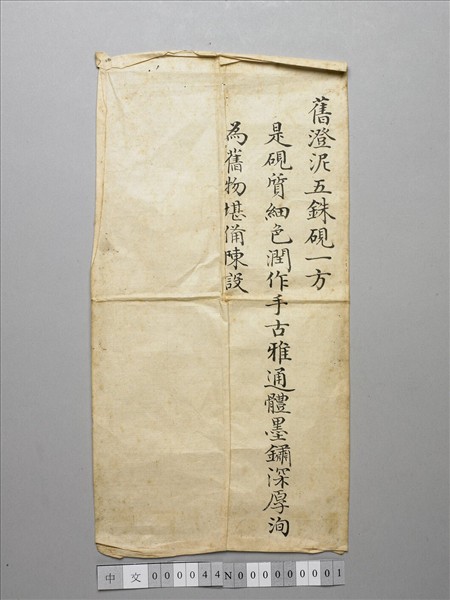 舊澄泥五銖硯一方
是硯質細色潤作手古雅通體墨鏽深厚洵
為舊物堪備陳設
中文000044N000000001